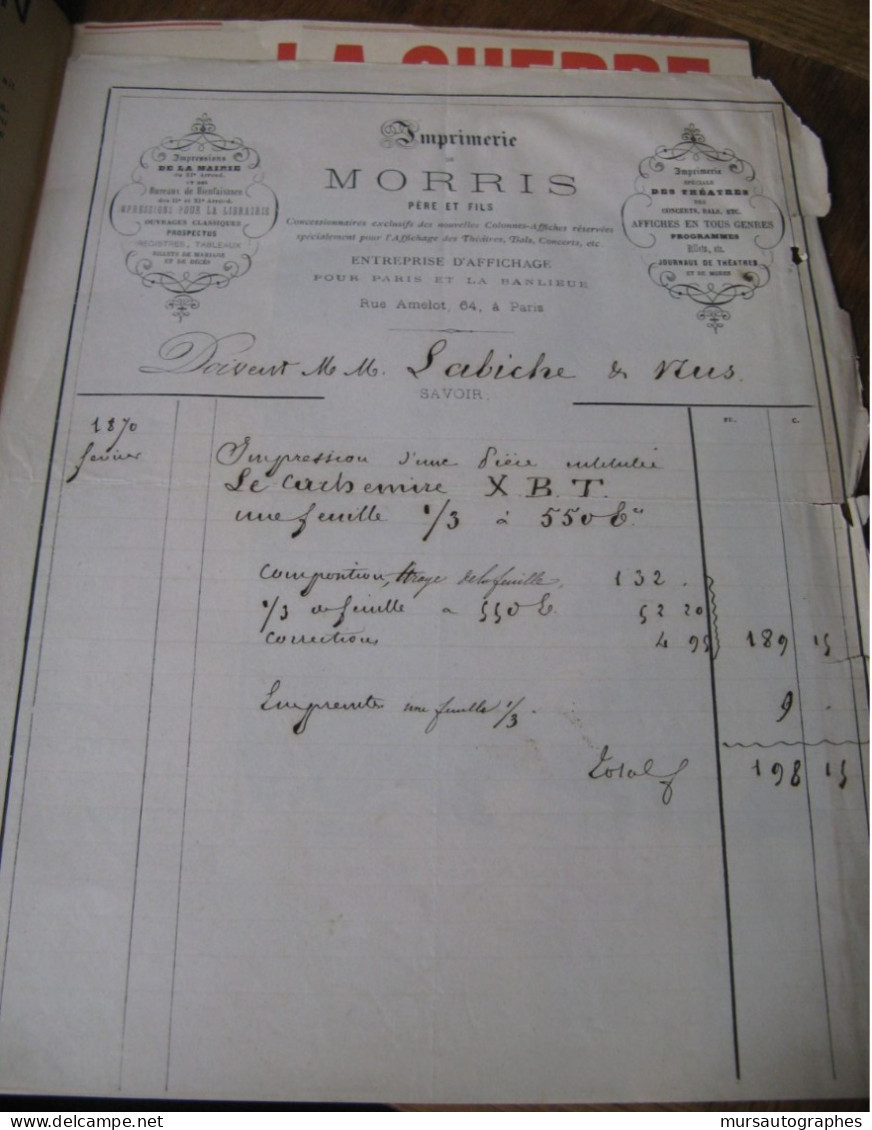 LA GUERRE
Impressions
DE LA MAIRIE
du XIe Arrond.
et aux
Bureaux de Bienfaisance
des IIe et XIe Arrond.
IMPRESSIONS POUR LA LIBRAIRIE
OUVRAGES CLASSIQUES
PROSPECTUS
REGISTRES, TABLEAUX
BILLETS DE MARIAGE
ET DE DÉCÈS
Imprimerie
DE
MORRIS
PÈRE ET FILS
Concessionnaires exclusifs des nouvelles Colonnes-Affiches réservées
spécialement pour l'Affichage des Théâtres, Bals, Concerts, etc.
ENTREPRISE D'AFFICHAGE
POUR PARIS ET LA BANLIEUE
Rue Amelot, 64, à Paris
Imprimerie
SPÉCIALE
DES THÉATRES
DES
CONCERTS, BALS, ETC.
AFFICHES EN TOUS GENRES
PROGRAMMES
Billets, etc.
JOURNAUX DE THÉATRES
ET DE MODES
Doivent M M. Labiche & Nus.
SAVOIR:
FR. C.
1870
février
Impression d'une Pièce intitulée
Le Cachemire X. B. T.
une feuille 1/3 à 550 Ex
Composition, tirage de la feuille, 132 .
1/3 de feuille à 550 E 52 20
Corrections 4 95 189 15
Empreintes une feuille 1/3. 9 .
Total f 198 15
DELCAMPE.NET
mursautographes